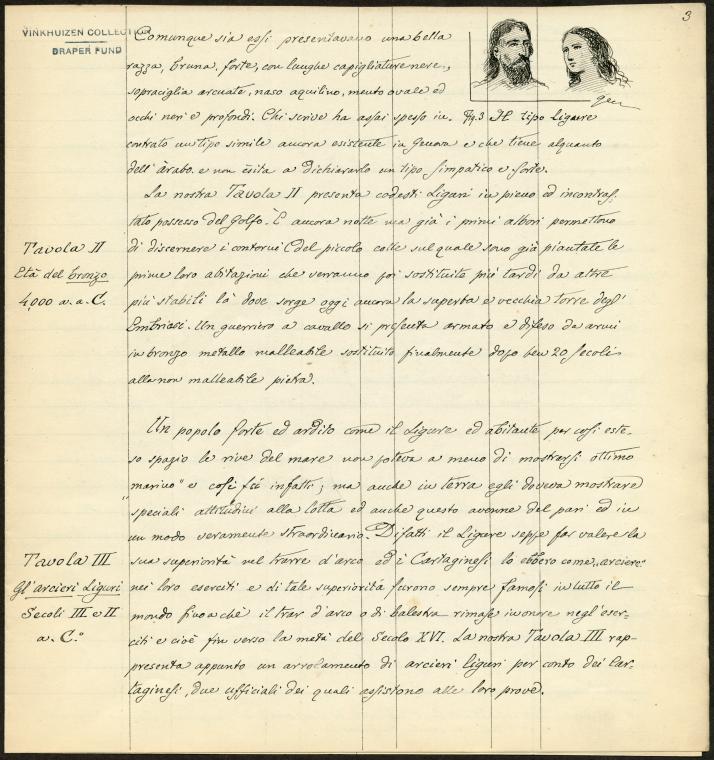 3
VINKHUIZEN COLLECTION
DRAPER FUND
Comunque sia essi presentavano una bella
razza, bruna, forte, con lunghe capigliature nere,
sopraciglia arcuate, naso aquilino, mento ovale ed
occhi neri e profondi. Chi scrive ha assai spesso in-
Fig. 3 Il tipo Ligure
contrato un tipo simile ancora esistente in Genova e che tiene alquanto
dell'àrabo e non esita a dichiararlo un tipo simpatico e forte.
La nostra Tavola II presenta codesti Liguri in pieno ed incontras-
tato possesso del Golfo. È ancora notte ma già i primi albori permettono
di discernere i contorni del piccolo colle sul quale sono già piantate le
prime loro abitazioni che verranno poi sostituite più tardi da altre
più stabili là dove sorge oggi ancora la superba e vecchia torre degl'
Embriaci. Un guerriero a cavallo si presenta armato e difeso da armi
in bronzo metallo malleabile sostituito finalmente dopo ben 20 secoli
alla non malleabile pietra.
Tavola II
Età del bronzo
4,000 a. a. C.
Un popolo forte ed ardito come il Ligure ed abitante per così este-
so spazio le rive del mare non poteva a meno di mostrarsi ottimo
"marino" e così fù infatti; ma anche in terra egli doveva mostrare
speciali attitudini alla lotta ed anche questo avenne del pari ed in
un modo veramente straordinario. Difatti il Ligure seppe far valere la
sua superiorità nel trarre d'arco ed i Cartaginesi lo ebbero come "arciere"
nei loro eserciti e di tale superiorità furono sempre famosi in tutto il
mondo fino a chè il trar d'arco o di balestra rimase in onore negl'eser-
citi e cioè fin verso la metà del Secolo XVI. La nostra Tavola III rap-
presenta appunto un arrolamento di arcieri liguri per conto dei Car-
taginesi, due ufficiali dei quali assistono alle loro prove.
Tavola III
Gl'arcieri Liguri
Secoli III e II
a. C.º